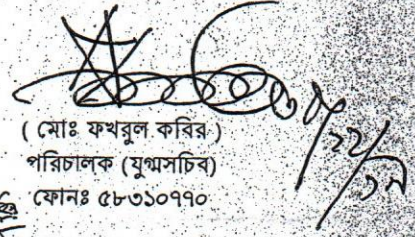 ( মোঃ ফখরুল কবির )
পরিচালক (যুগ্মসচিব)
ফোনঃ ৫৮৩১০৭৭০